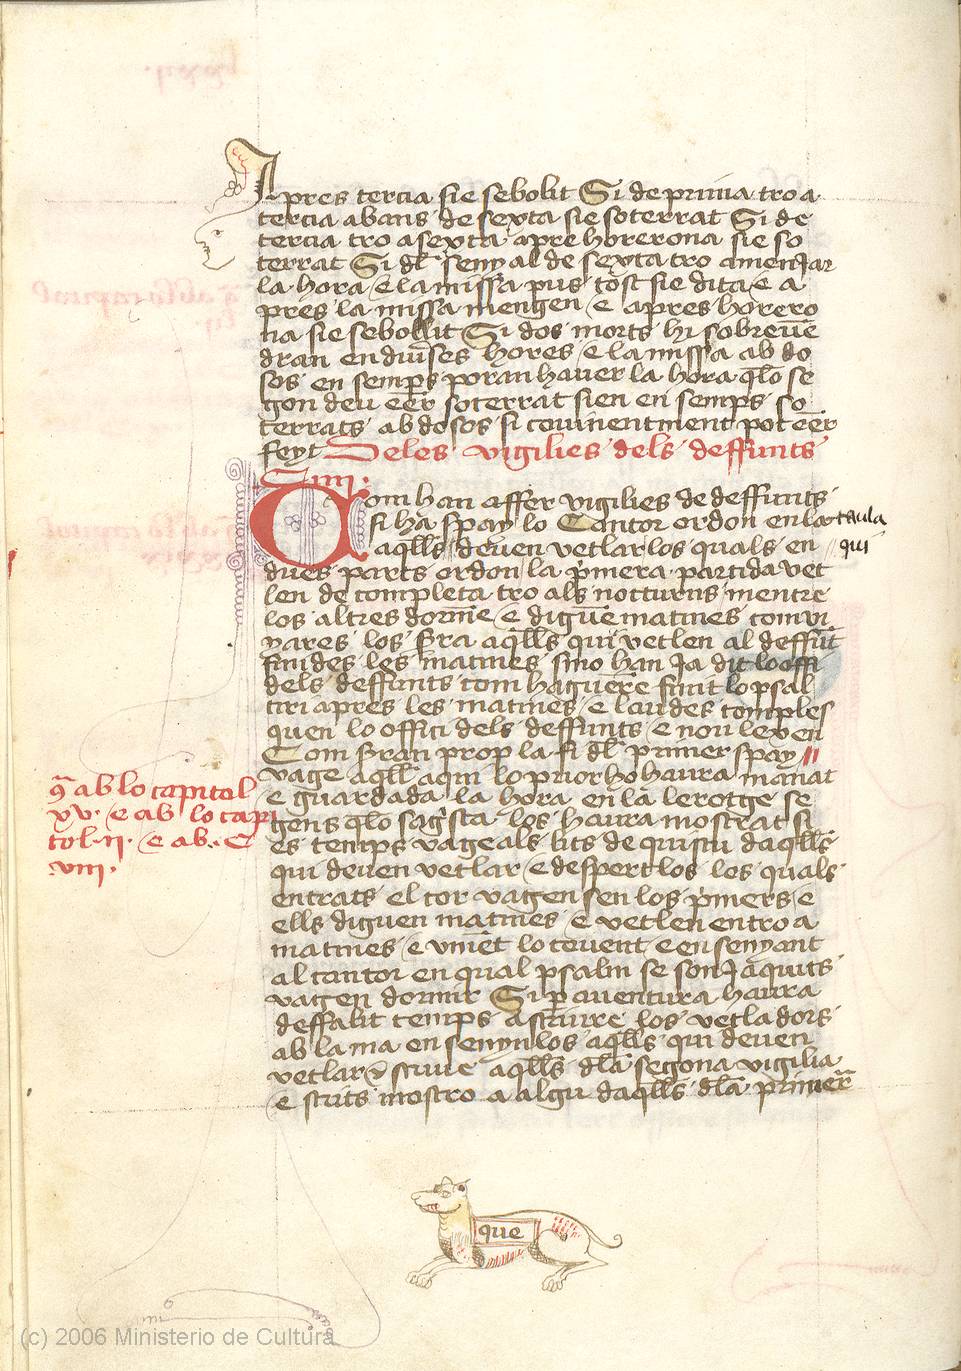 Apres tercia sie sebolit Si de prima tro a
tercia abans de sexta sie soterrat Si de
tercia tro a sexta apre hora nona sie so
terrat Si dl̄ seny al de sexta tro a menjar
la hora e la missa pus tost sie dita e a
pres la missa mengen e apres hora no
na sie sebollit Si dos morts hi sobreuē
dran en diuses hores e la missa ab do
sos en semps poran hauer la hora qlo se
gon deu eēr soterrat sien en semps so
terrats ab dosos si couinentment pot eēr
feyt Deles vigilies dels deffunts
iiii.
Com han affer vigilies de deffunts
si ha spay lo Cantor ordon en la taula
aqlls deuen vetlar los quals en qui
dues parts ordon la pmera partida vet
len de completa tro als nocturns mentre
los altres dormē e diguē matines
los aqlls qui vetlen al deffūt
finides les matines sino han ja dit lo offi
dels deffunts com haguerē finit lo psal
tiri apres les matines e laudes comples
quen lo offici dels deffunts e nou lexen
Com sran prop la fi dl̄ primer spay
vage aqll̄ aqui lo prior ho haura manat
e guardada la hora en la lerotge se
gens qlo sagsta los haura mostrat si
es temps vage als lits de quiscu daqlls
qui deuen vetlar e despert los los quals
entrats el cor vagen sen los pmers e
ells diguen matines e vetlen entro a
matines e vinēt lo couent e en senyant
al cantor en qual psalm se son jaquits
vagen dormir Si p auentura haura
deffalit temps a scriure los vetladors
ab la ma en senyn los aqlls qui deuen
vetlar scriue aqlls dla segona vigilia
e scrits mostro a algu daqlls dla primera
ꝯ̄ ab lo capitol
xv. e ab lo capi
tol .ii. e ab . C
viii.
que
(c) 2006 Ministerio de Cultura